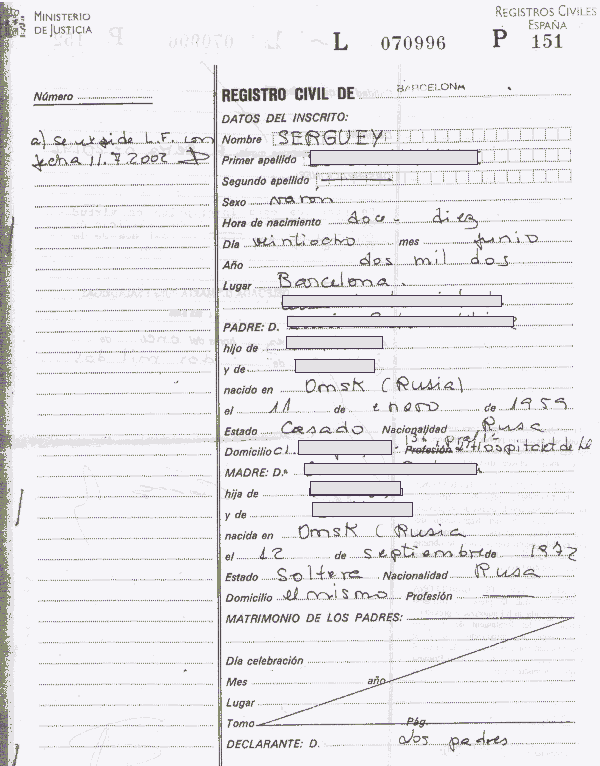 MINISTERIO
DE JUSTICIA
REGISTROS CIVILES
ESPAÑA
L 070996 P 151
Número
a) se expide L.F. con
fecha 11.7.2002
REGISTRO CIVIL DE BARCELONA
DATOS DEL INSCRITO:
Nombre SERGUEY
Primer apellido
Segundo apellido
Sexo varon
Hora de nacimiento doce - diez
Día veintiocho mes junio
Año dos mil dos
Lugar Barcelona.
PADRE: D.
hijo de
y de
nacido en Omsk (Rusia)
el 11 de enero de 1959
Estado Casado Nacionalidad Rusa
Domicilio c/. Profesión Hospitalet de Ll
MADRE: D.ª
hija de
y de
nacida en Omsk (Rusia
el 12 de septiembre de 1972
Estado Soltera Nacionalidad Rusa
Domicilio el mismo Profesión
MATRIMONIO DE LOS PADRES:
Día celebración
Mes año
Lugar
Tomo Pág.
DECLARANTE: D. Los padres